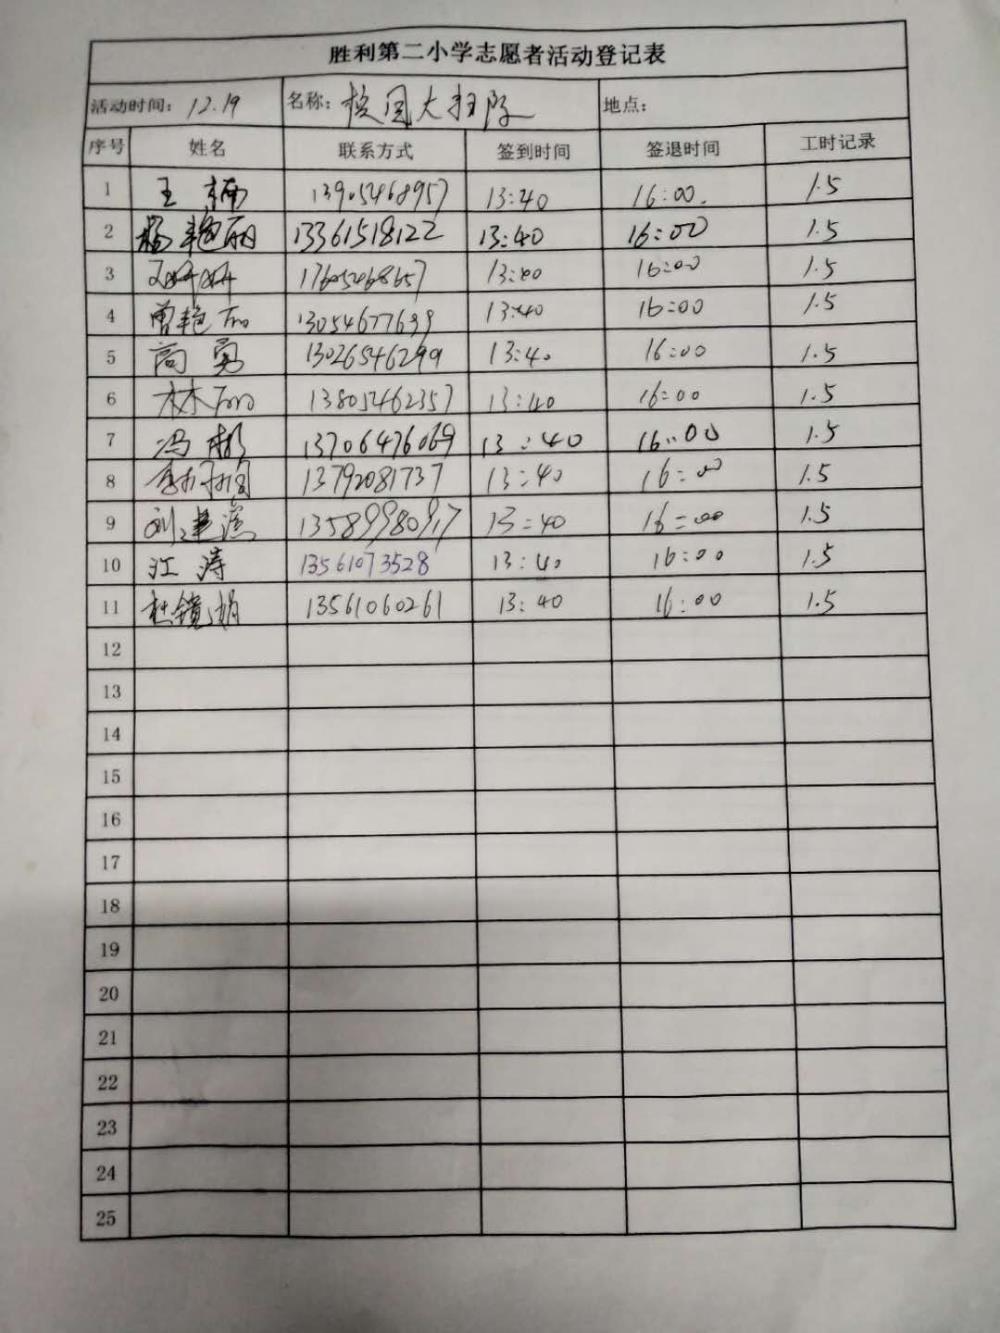 胜利第二小学志愿者活动登记表
活动时间：12.19 名称：校园大扫除 地点：
序号 姓名 联系方式 签到时间 签退时间 工时记录
1 王楠 13905468957 13:40 16:00. 1.5
2 杨艳丽 13361518122 13:40 16:00 1.5
3 17605468657 13:40 16:00 1.5
4 曾艳丽 13054677699 13:40 16:00 1.5
5 高勇 13026546299 13:40 16:00 1.5
6 林丽 13805462357 13:40 16:00 1.5
7 冯彬 13706476069 13:40 16:00 1.5
8 13792081737 13:40 16:00 1.5
9 刘建滨 13589980917 13:40 16:00 1.5
10 江涛 13561073528 13:40 16:00 1.5
11 杜镜娟 13561060261 13:40 16:00 1.5
12
13
14
15
16
17
18
19
20
21
22
23
24
25